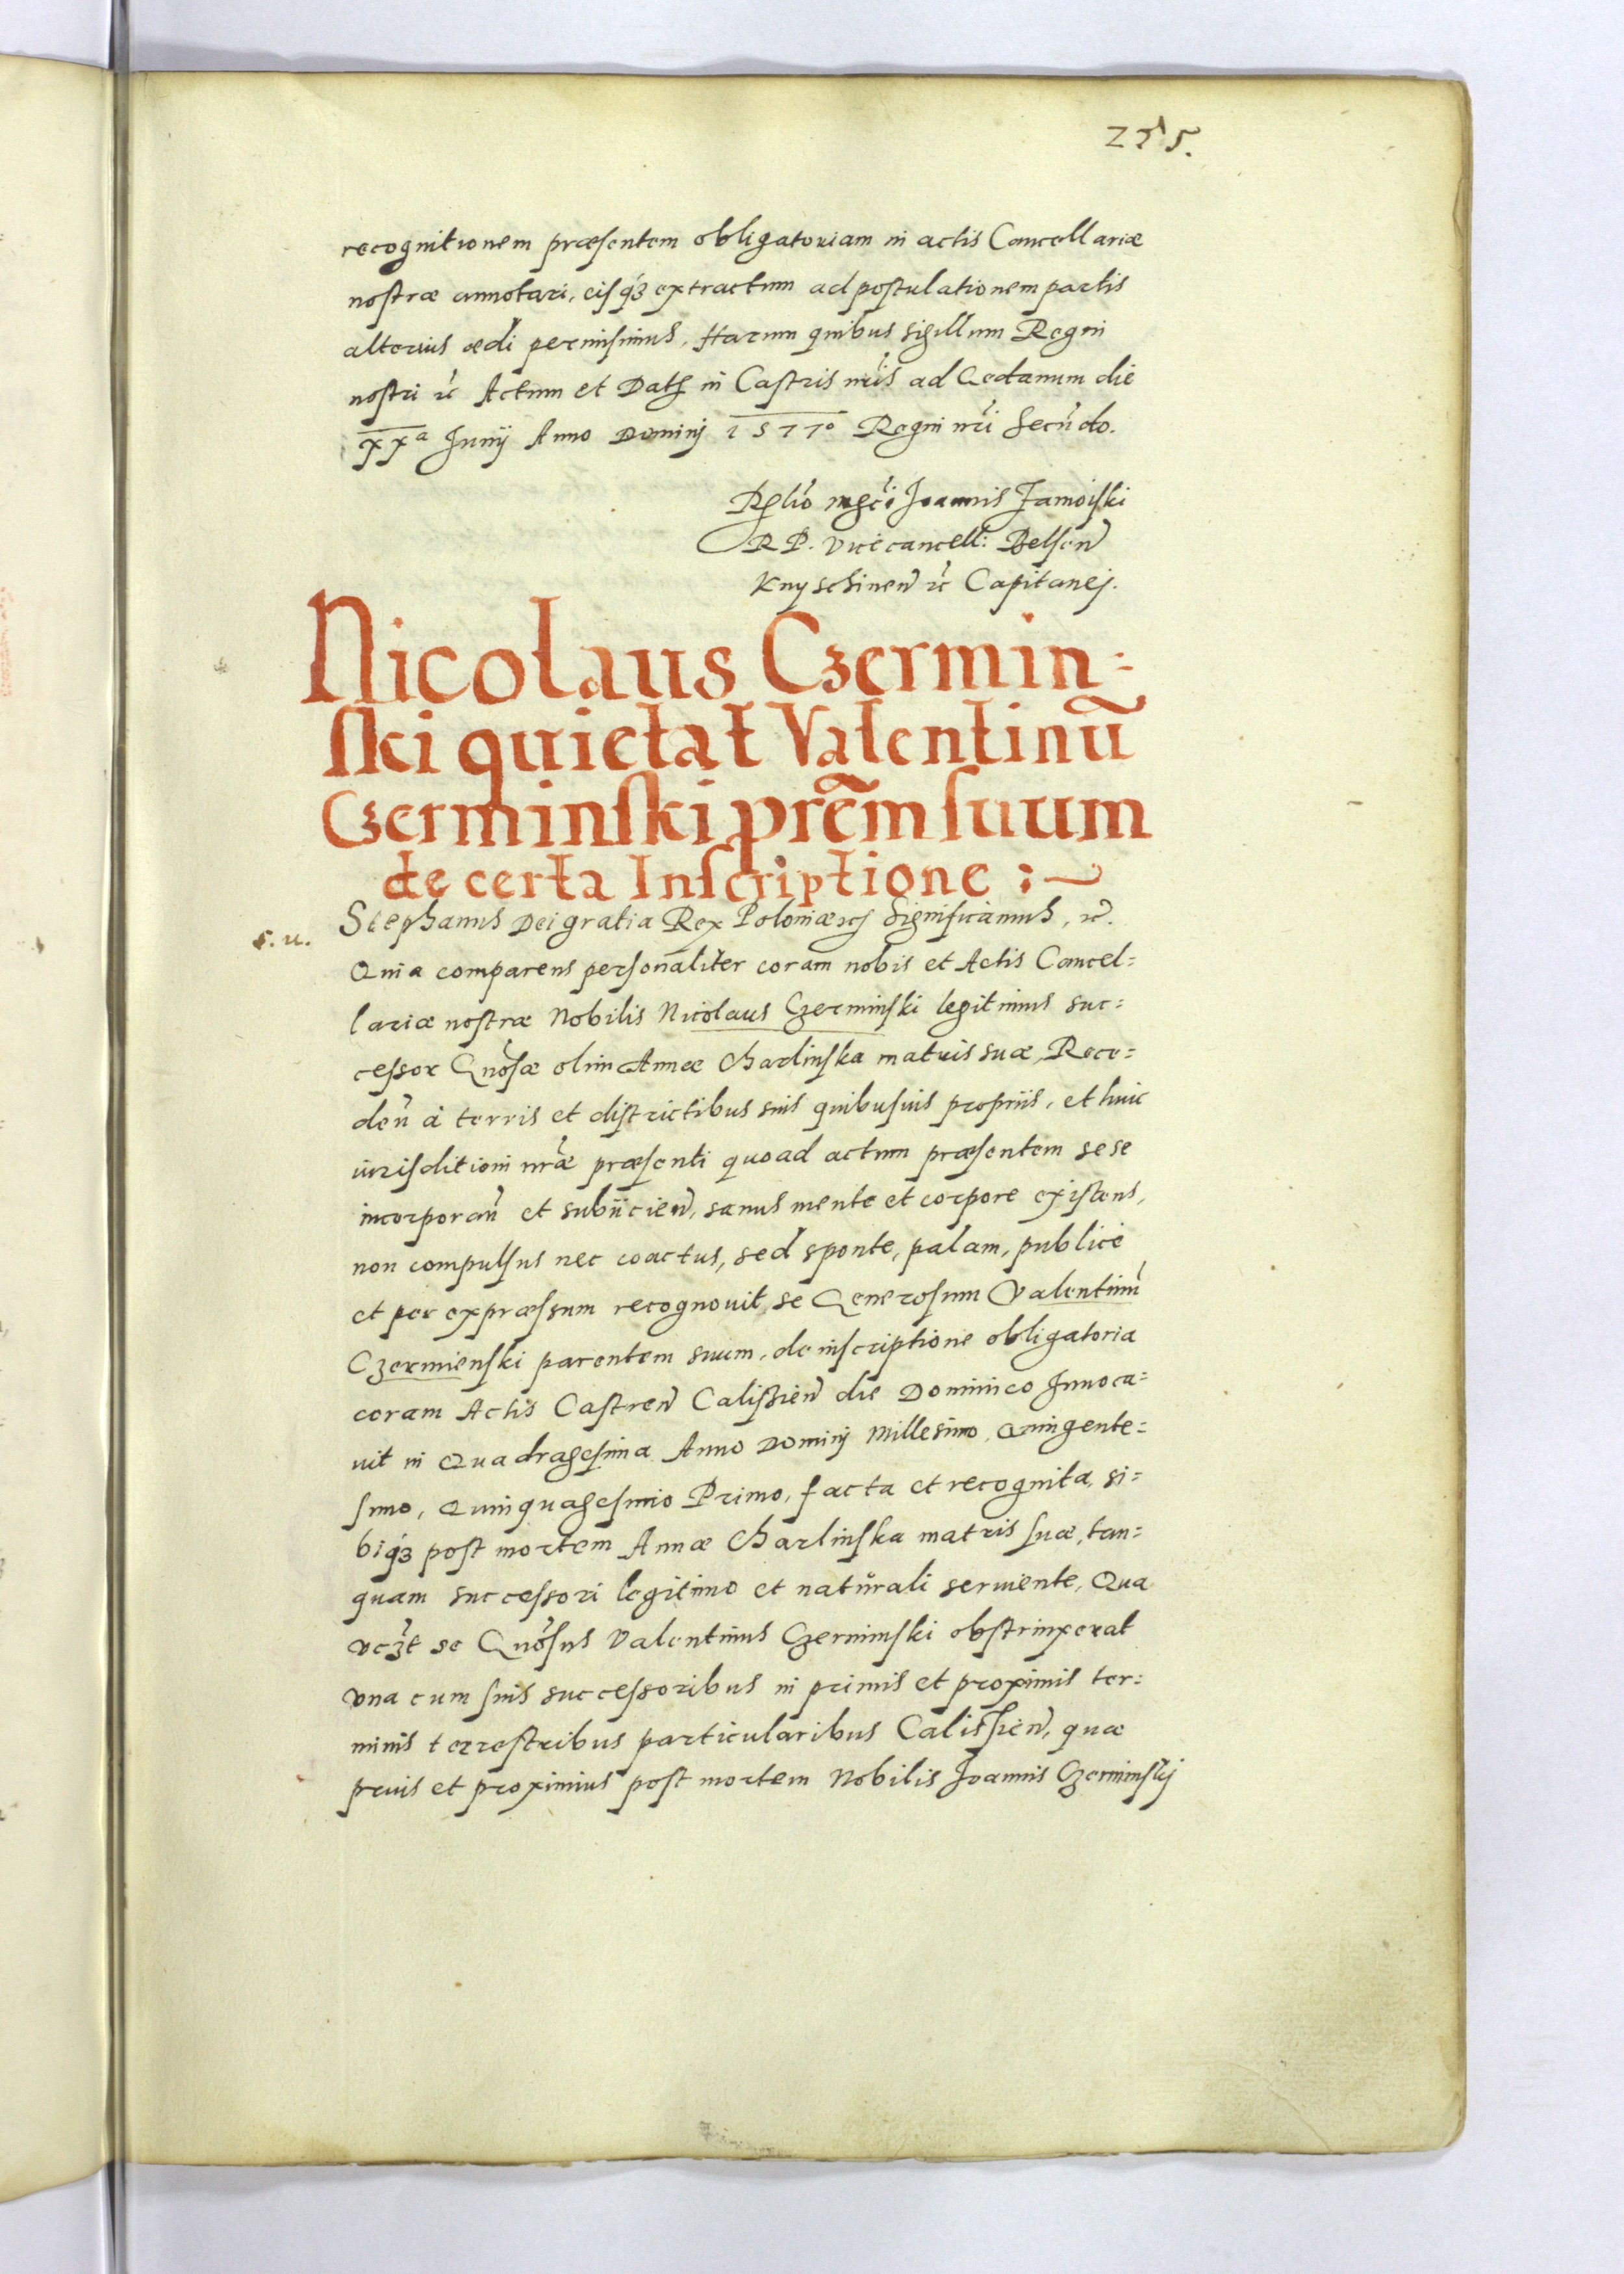 recognitionem præsentem obligatoriam in actis Cancellariæ
nostræ annotari, eisq́ꝫ extractum ad postulationem partis
alterius ædi permisimus, Harum quibus sigillum Regni
nostri ꝛc̃ Actum et Datꝭ in Castris nr̃is ad Gedanum die
XXᵃ Junij Anno Dominj 1577º Regni nr̃i Secũdo.
Rel̃io mgc̃i Joannis Zamoiski
R P. Vicecancell: Belsen̄
Knyschinen̄ ꝛc̃ Capitanej.
Nicolaus Czermin=
ski quietat Valentinũ
Czerminski prẽm suum
de certa Inscriptione :~
Stephanus Dei gratia Rex Poloniæ ꝛcꝭ Significamus, ꝛc̃.
Quia comparens personaliter coram nobis et Actis Cancel=
lariæ nostræ Nobilis Nicolaus Czerminski legitimus suc=
cessor Gnõsæ olim Annæ Charlinska matris suæ, Rece=
den̄ à terris et districtibus suis quibusuis propriis, et huic
iurisditioni nr̃æ præsenti quoad actum præsentem sese
incorporan̄ et subiicien̄, sanus mente et corpore existens,
non compulsus nec coactus, sed sponte, palam, publicè
et per expræssum recognouit, se Generosum Valentinũ
Czermienski parentem suum, de inscriptione obligatoria
coram Actis Castren̄ Calissien̄ die Dominico Inuoca=
uit in Quadragesima Anno Dominj Millesimo, Quingente=
simo, Quinquagesimo Primo, facta et recognita, si=
biq́ꝫ post mortem Annæ Charlinska matris suæ, tan=
quam successori legitimo et naturali seruiente, Qua
se Gnõsus Valentinus Czerminski obstrinxerat
vna cum suis successoribus in primis et proximis ter=
minis terrestribus particularibus Calissien̄, quæ
prius et proximius post mortem Nobilis Joannis Czerminskj